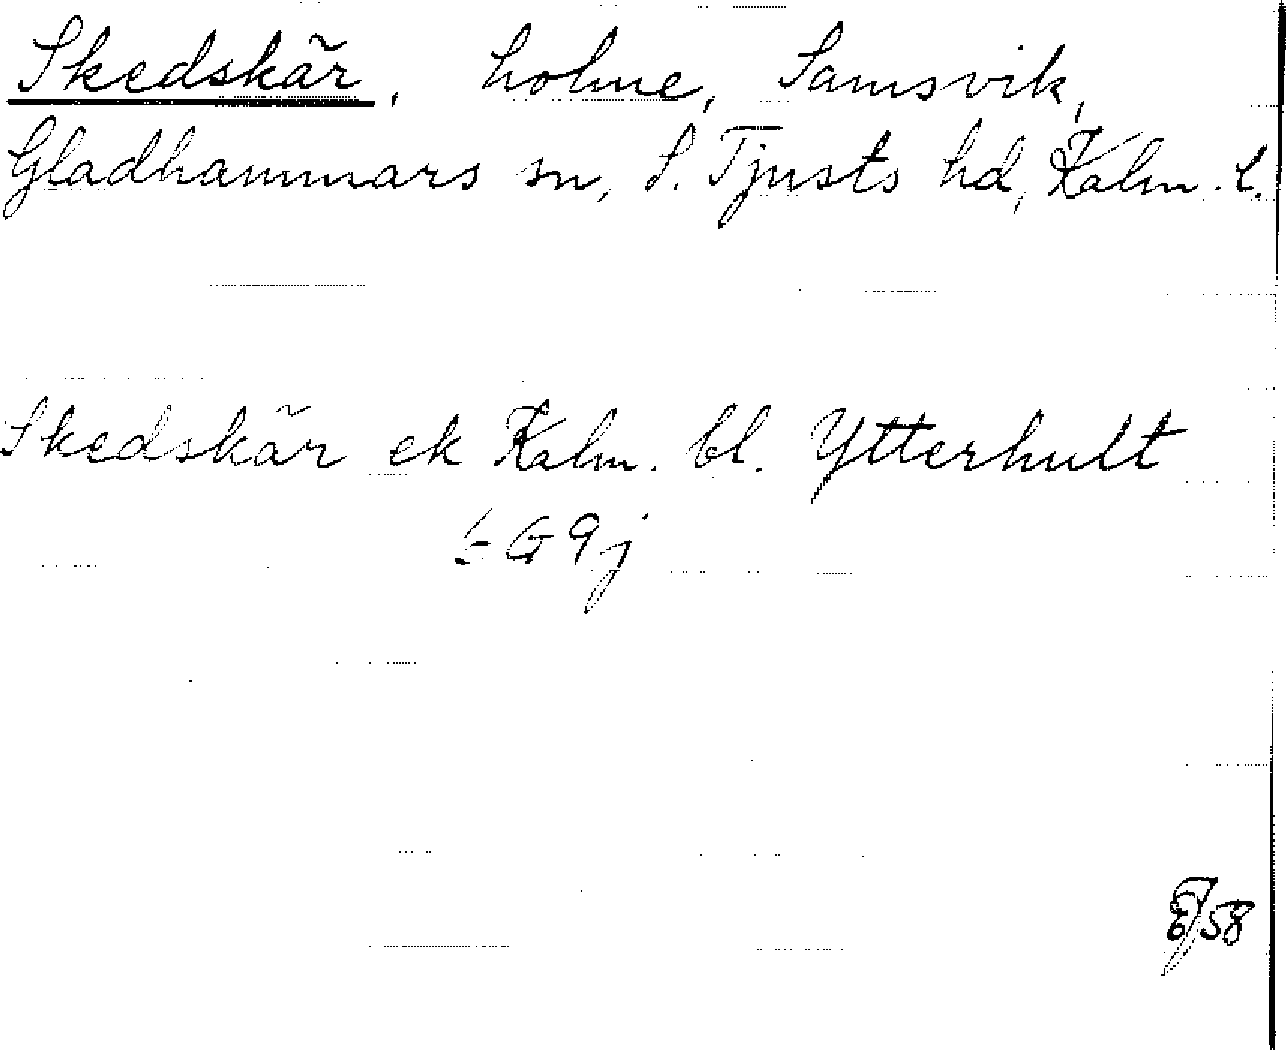 Skedskär, holme, Samsvik,
Gladhammars sn, S. Tjusts hd, Kalm. l.
Skedskär ek Kalm. bl. Ytterhult
6 G 9j
58